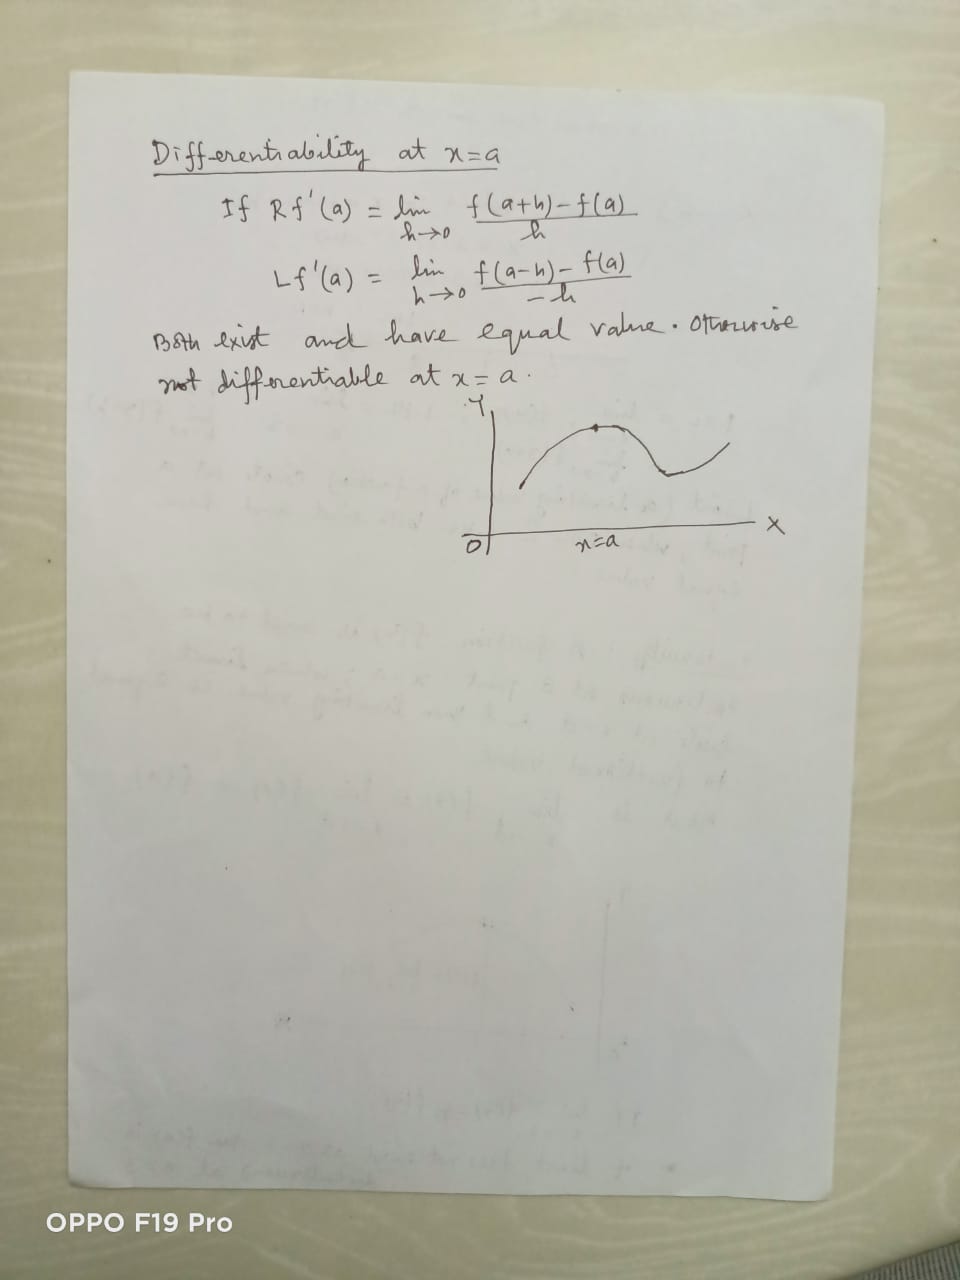 Differentiability at x=a
If Rf'(a) = lim h→0 f(a+h)-f(a) / h
Lf'(a) = lim h→0 f(a-h)-f(a) / -h
Both exist and have equal value. Otherwise
not differentiable at x=a.
Y
X
O
x=a
OPPO F19 Pro